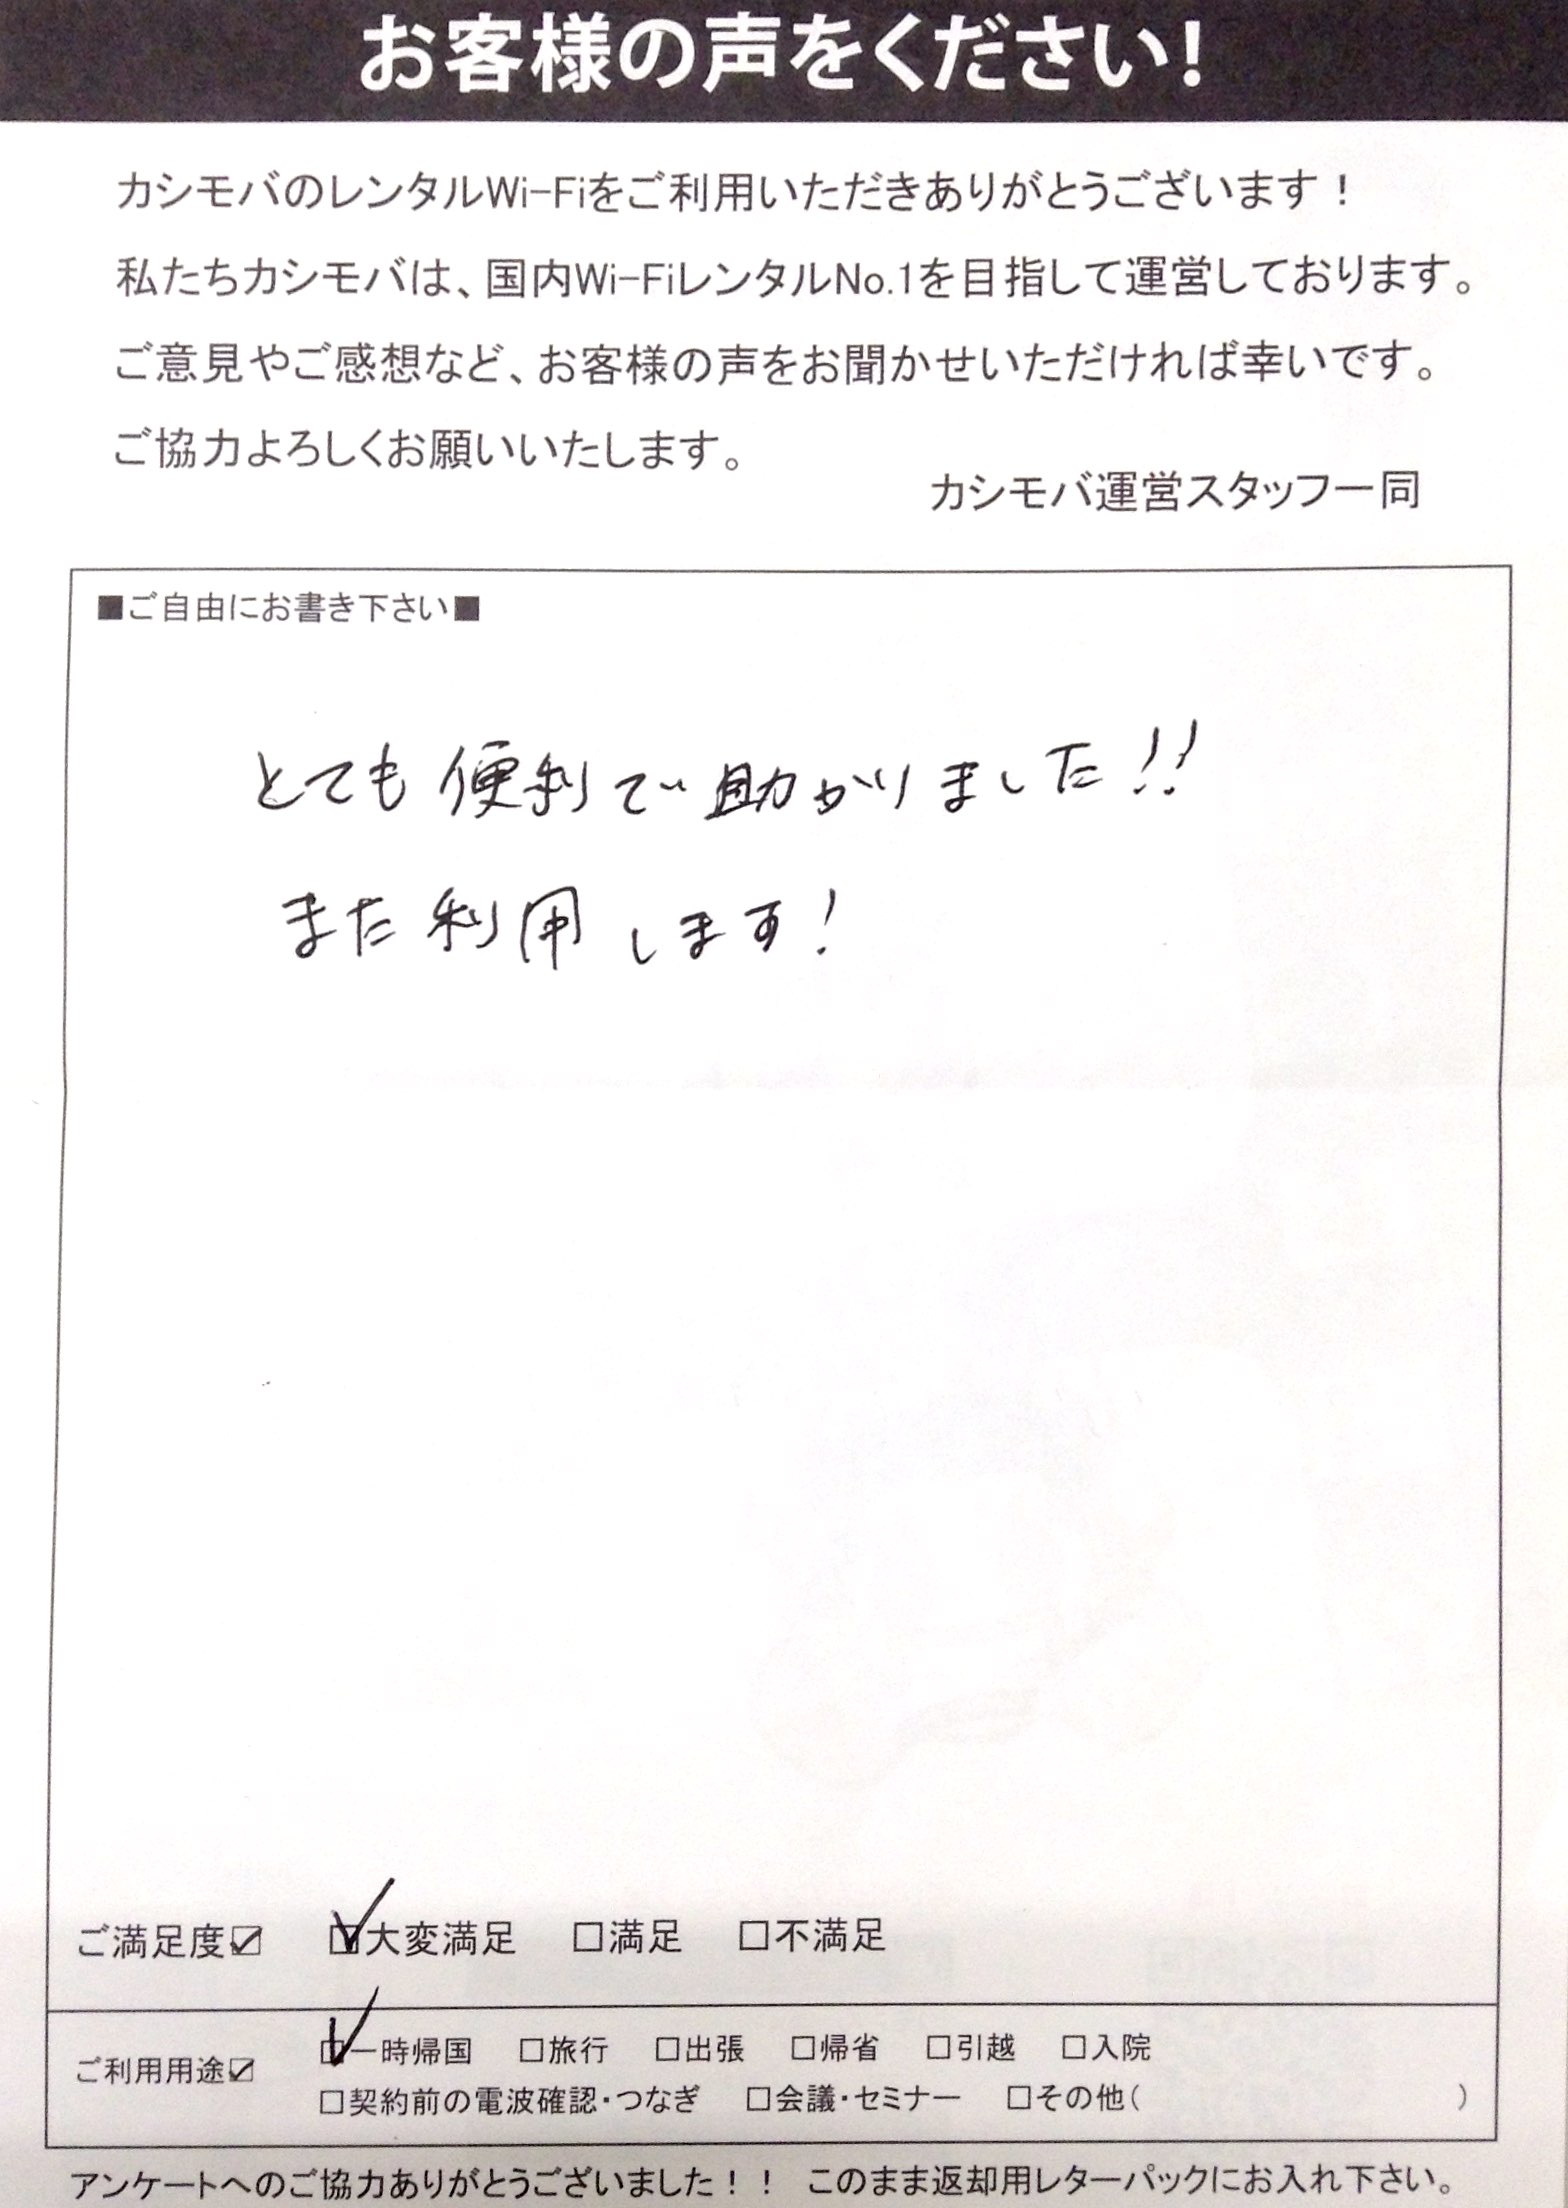 お客様の声をください!
カシモバのレンタルWi-Fiをご利用いただきありがとうございます！
私たちカシモバは、国内Wi-FiレンタルNo.1を目指して運営しております。
ご意見やご感想など、お客様の声をお聞かせいただければ幸いです。
ご協力よろしくお願いいたします。
カシモバ運営スタッフ一同
■ご自由にお書き下さい■
とても便利で助かりました!!
また利用します!
ご満足度☑ ☑大変満足 □満足 □不満足
ご利用用途☑ ☑一時帰国 □旅行 □出張 □帰省 □引越 □入院
□契約前の電波確認・つなぎ □会議・セミナー □その他( )
アンケートへのご協力ありがとうございました！！ このまま返却用レターパックにお入れ下さい。